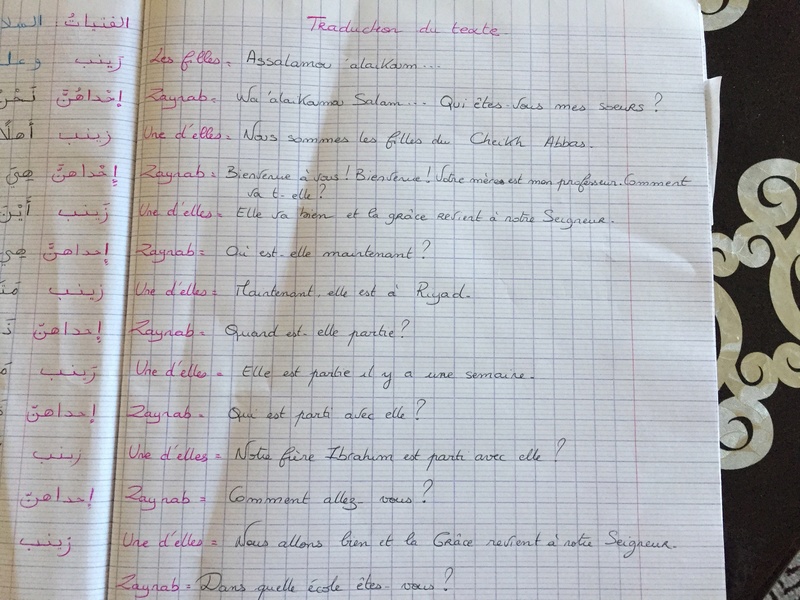 Traduction du texte
Les filles = Assalamou 'alaikum...
Zaynab = Wa 'alaikuma Salam... Qui êtes-vous mes soeurs ?
Une d'elles = Nous sommes les filles du Cheikh Abbas.
Zaynab = Bienvenue à vous ! Bienvenue ! Votre mère est mon professeur. Comment
va t-elle ?
Une d'elles = Elle va bien et la grâce revient à notre Seigneur.
Zaynab = Où est-elle maintenant ?
Une d'elles = Maintenant, elle est à Riyad.
Zaynab = Quand est-elle partie ?
Une d'elles = Elle est partie il y a une semaine.
Zaynab = Qui est parti avec elle ?
Une d'elles = Notre frère Ibrahim est parti avec elle ?
Zaynab = Comment allez-vous ?
Une d'elles = Nous allons bien et la Grâce revient à notre Seigneur.
Zaynab = Dans quelle école êtes-vous ?
الفتيات: السلا
زَينب وعلـ
إحْداهُنَّ نَحْن
زينب أهلًا
إِحْداهنّ هِيَ
زَينب أَيْن
إحداهنّ هِيَ
زينب
إحداهنّ
زَينب
إحداهنّ
زينب
إحداهنّ
زينب